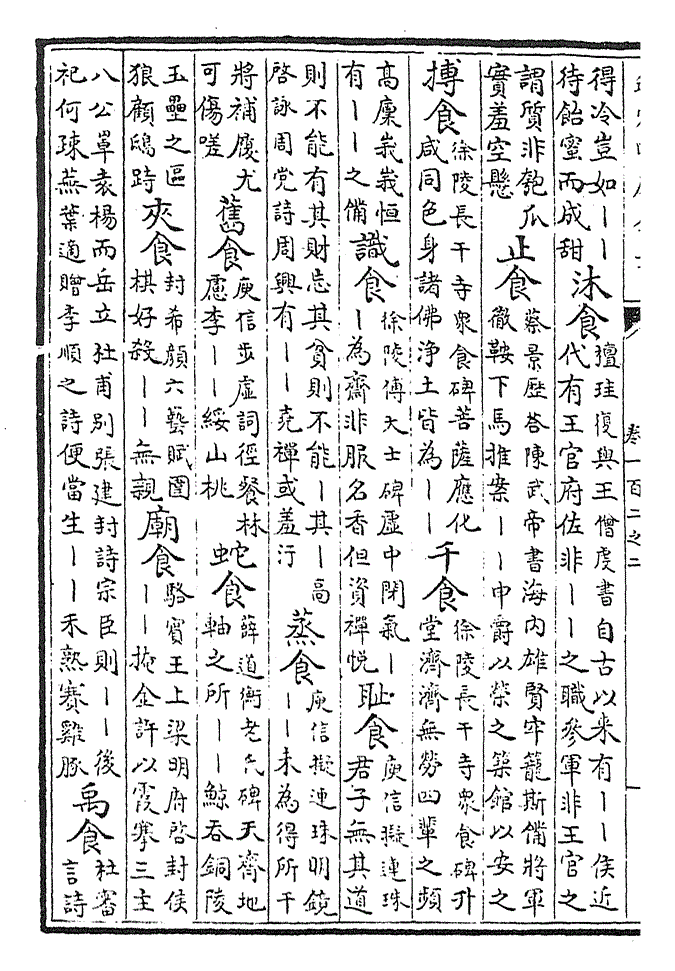 卷一百二之二
得冷豈如丨丨
待飴蜜而成甜
沐食
檀珪復與王僧虔書自古以来有丨丨侯近
代有王官府佐非丨丨之職參軍非王官之
謂質非匏瓜
實羞空懸
止食
蔡景歴答陳武帝書海内雄賢牢籠斯備將軍
徹鞍下馬推案丨丨申爵以榮之築館以安之
摶食
徐陵長干寺衆食碑菩薩應化
咸同色身諸佛淨土皆為丨丨
千食
徐陵長干寺衆食碑升
堂濟濟無勞四輩之頻
高廩峩峩恒
有丨丨之備
識食
徐陵傅大士碑虛中閉氣丨
丨為齋非服名香但資禪悦
恥食
庾信擬連珠
君子無其道
則不能有其財忘其貧則不能丨其丨高
啓詠周党詩周興有丨丨堯禪或羞行
蒸食
庾信擬連珠明鏡
丨丨未為得所干
將補履尤
可傷嗟
舊食
庾信步虛詞徑餐林
慮李丨丨綏山桃
蛇食
薛道衡老氏碑天齊地
軸之所丨丨鯨吞銅陵
玉壘之區
狼顧鴟跱
夾食
封希顔六藝賦圍
棋好殺丨丨無親
廟食
駱賓王上梁明府啓封侯
丨丨掩金許以霞搴三主
八公罩袁楊而岳立杜甫別張建封詩宗臣則丨丨後
祀何疎蕪葉適贈李順之詩便當生丨丨禾熟賽雞豚
禹食
杜審
言詩